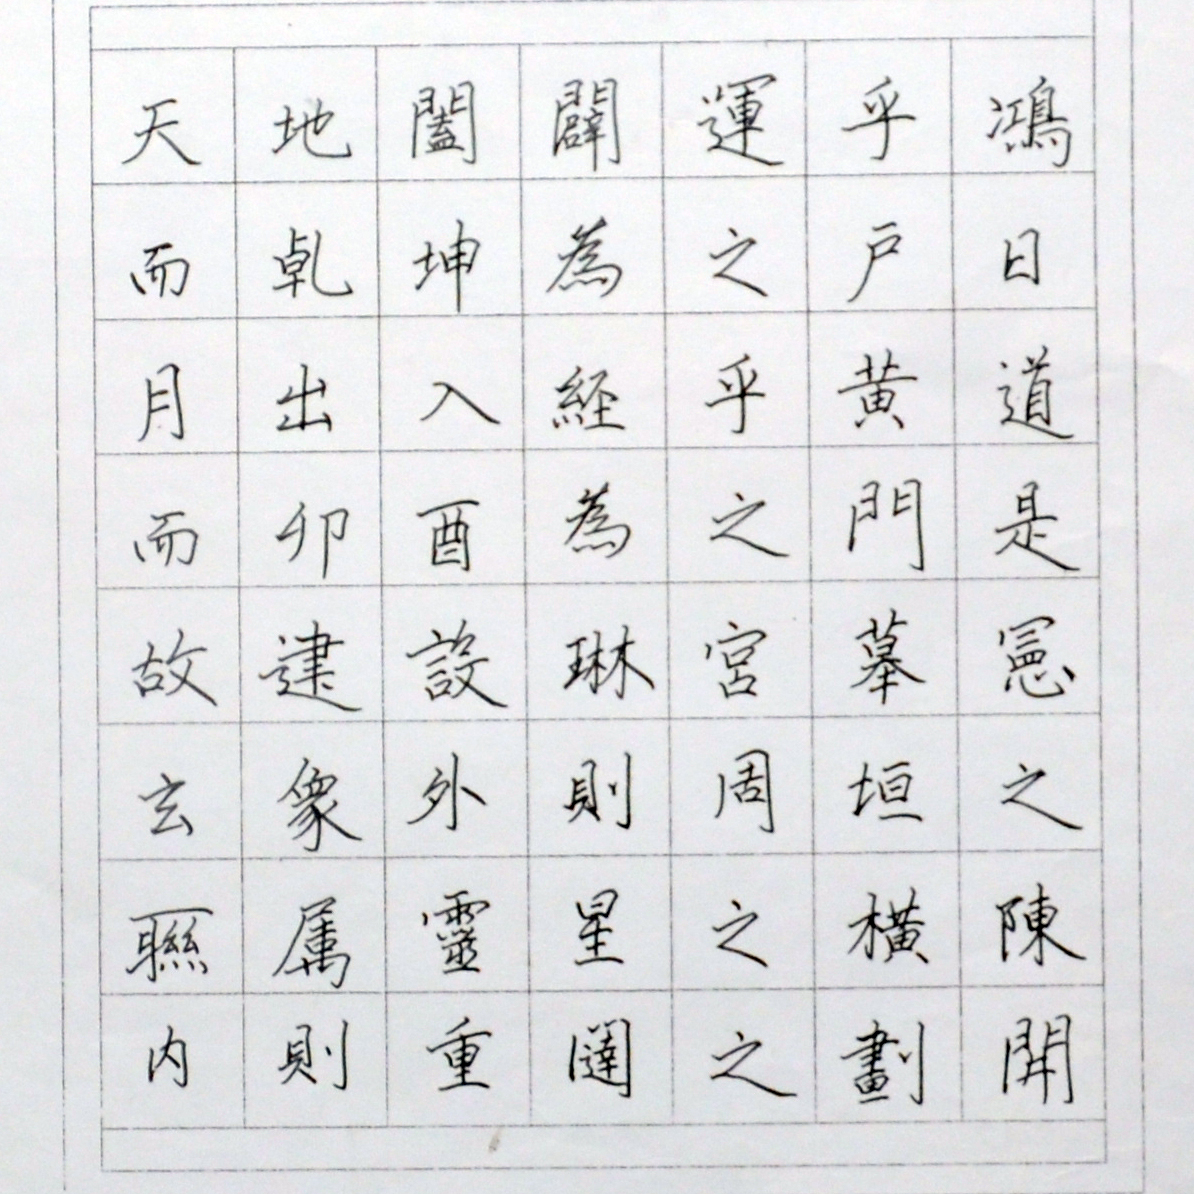 天地闔闢運乎鴻
而乾坤為之戶日
月出入經乎黃道
而卯酉為之門是
故建設琳宮摹憲
玄象外則周垣之
聯屬靈星之橫陳
內則重闥之劃開